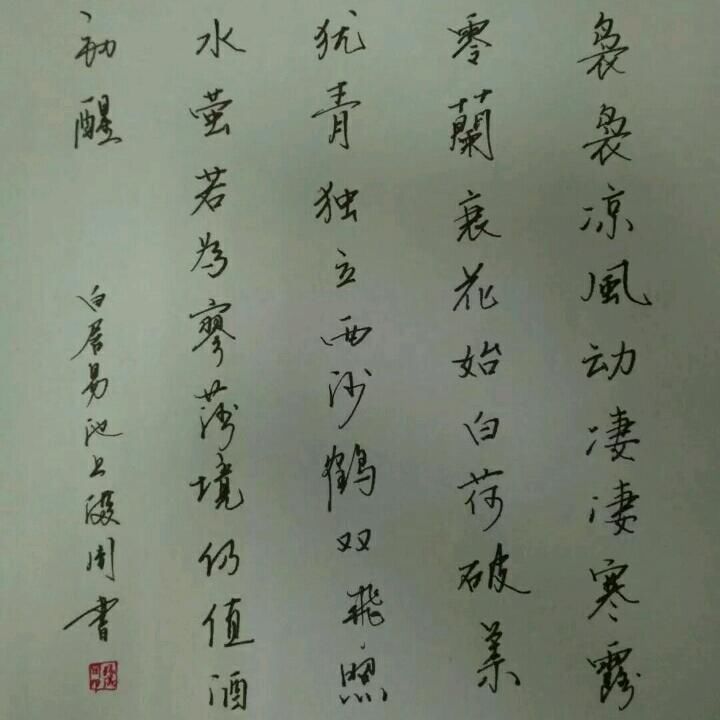 袅袅凉風动凄凄寒露
零蘭衰花始白荷破葉
犹青独立西沙鶴双飛照
水萤若為寥落境仍值酒
初醒
白居易池上周書